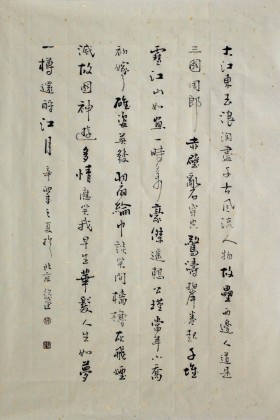 大江東去浪淘盡千古風流人物故壘西邊人道是
三國周郎赤壁亂石穿空驚濤拍岸卷起千堆
雪江山如畫一時多少豪傑遙想公瑾當年小喬
初嫁了雄姿英發羽扇綸巾談笑間檣櫓灰飛煙
滅故國神遊多情應笑我早生華髮人生如夢
一樽還酹江月 之夏於